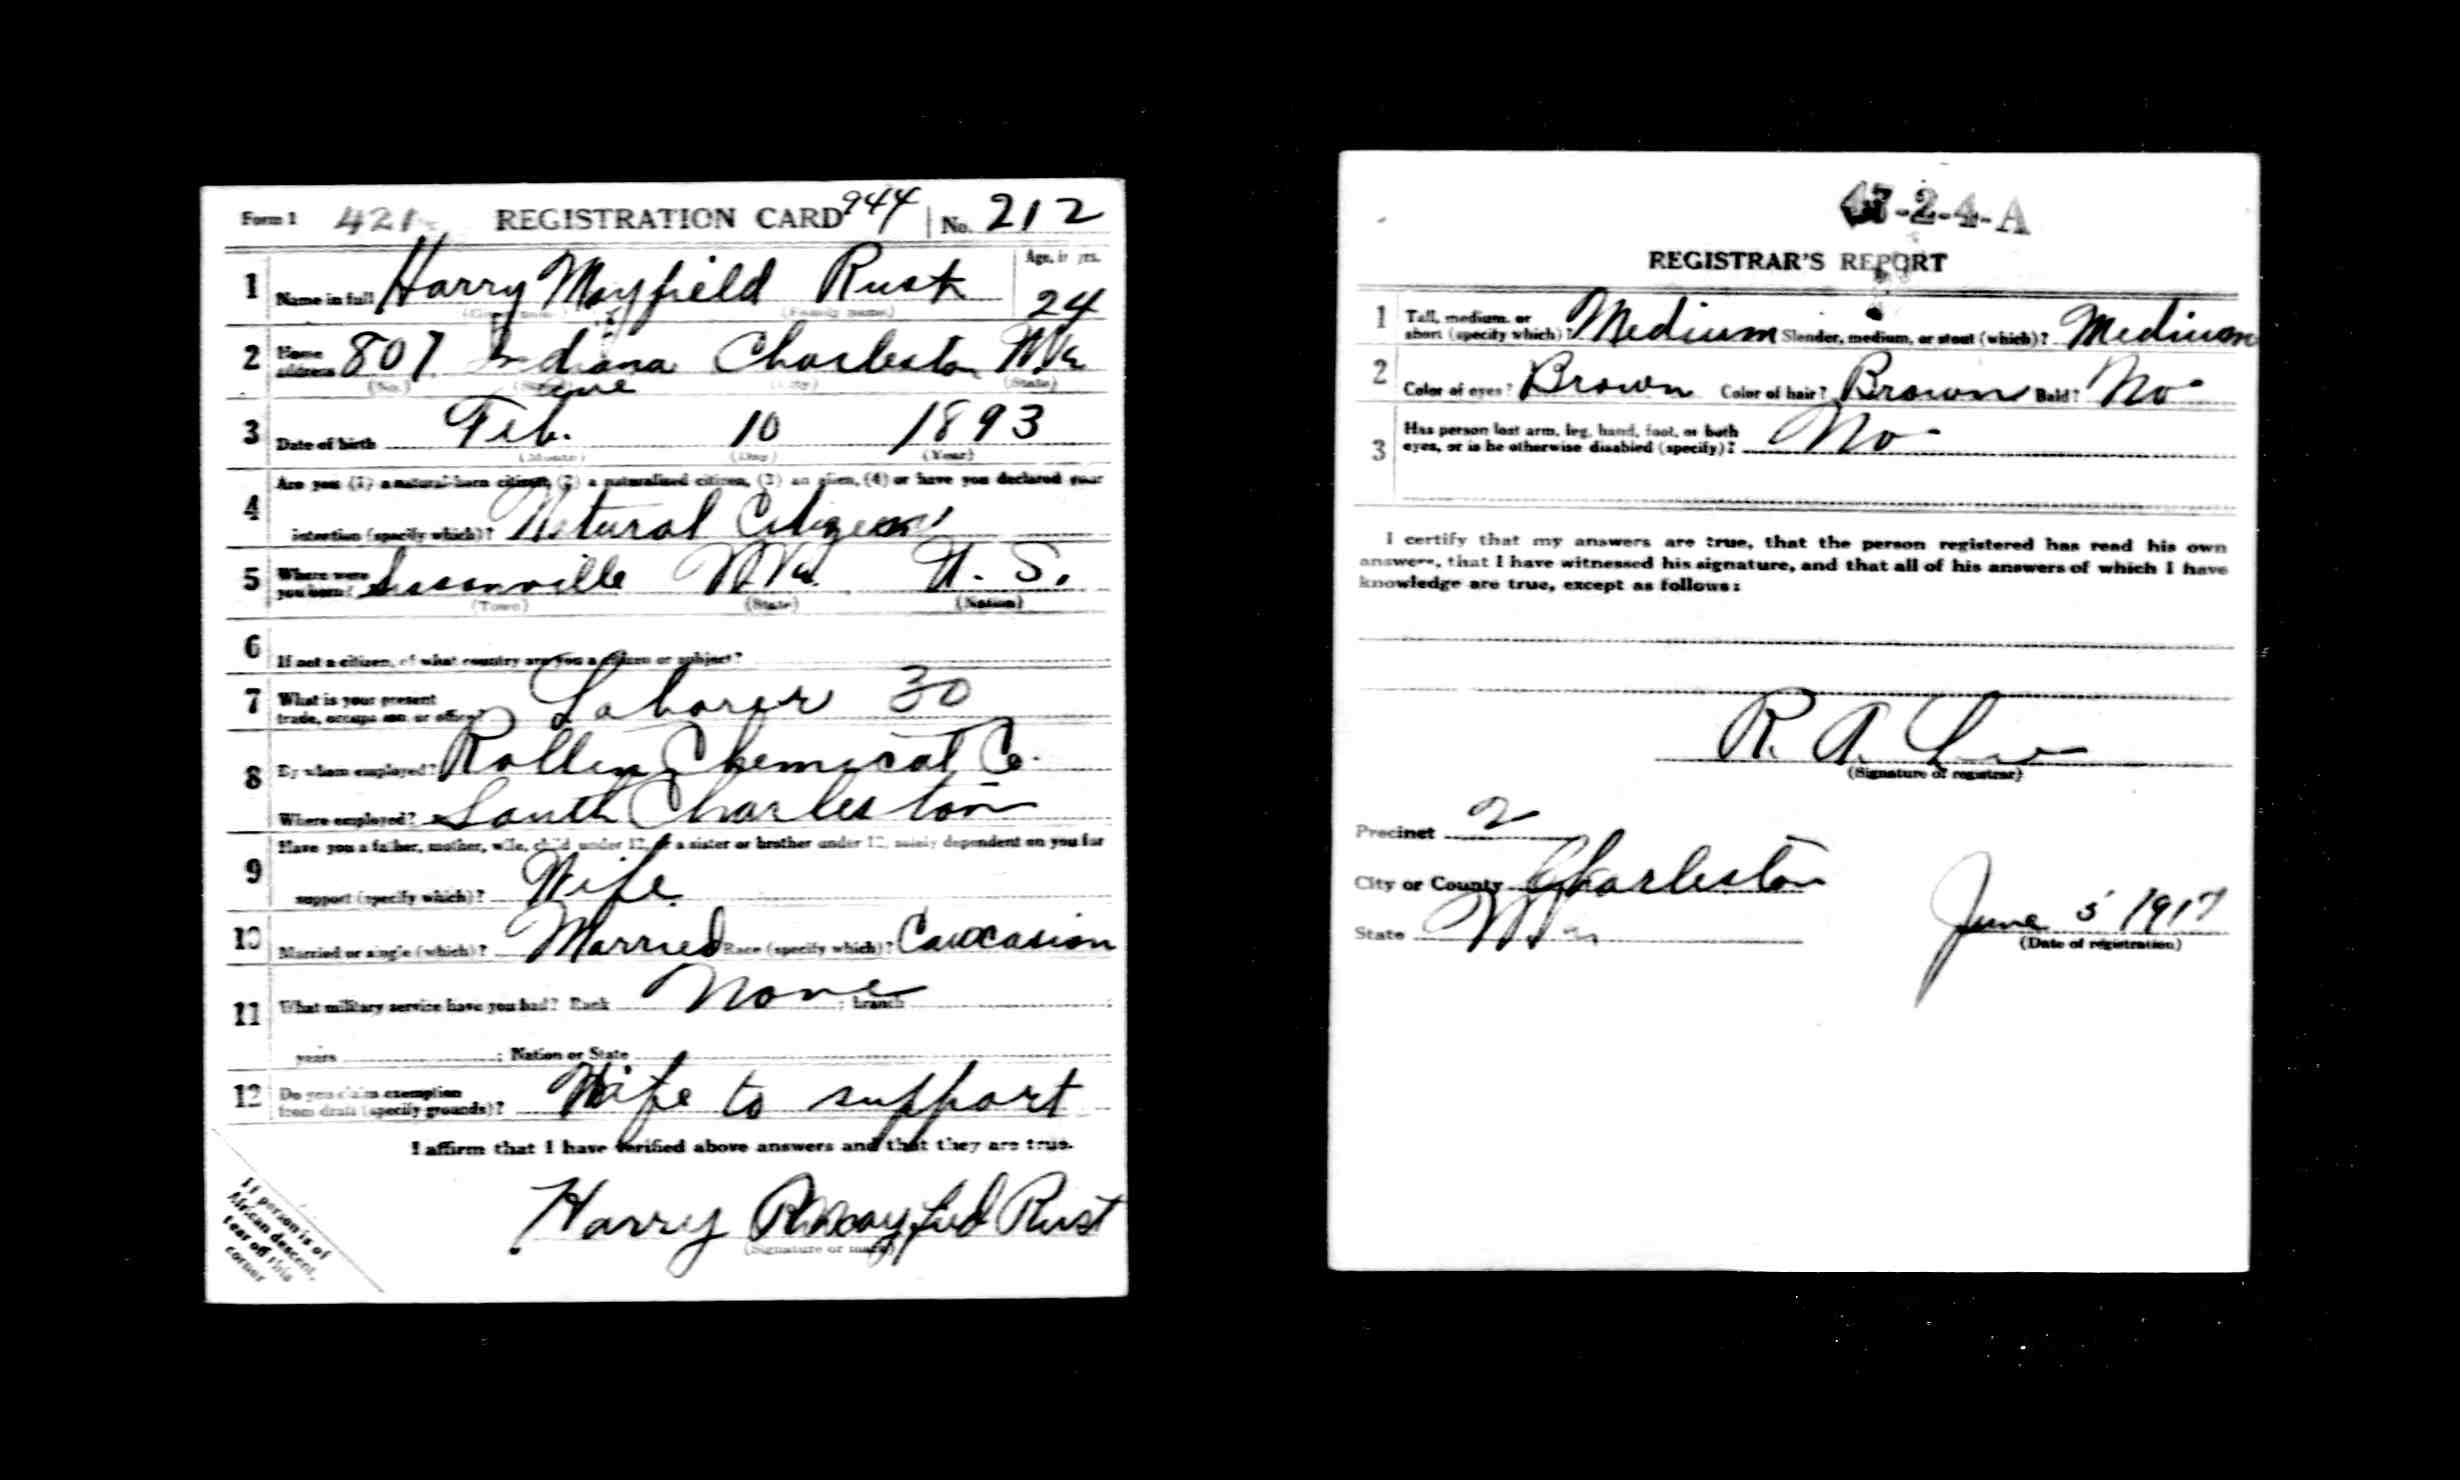 Form 1 421 REGISTRATION CARD 944 No. 212
1 Name in full Harry Mayfield Rust Age, in yrs. 24
(Family name)
2 Home address 807 Indiana Ave Charleston W.Va
(No.) (Street) (City) (State)
3 Date of birth Feb. 10 1893
(Month) (Day) (Year)
Are you (1) a natural-born citizen, (2) a naturalized citizen, (3) an alien, (4) or have you declared your
4 intention (specify which)? Natural Citizen
5 Where were you born? Sissonville W.Va. U.S.
(Town) (State) (Nation)
6 If not a citizen, of what country are you a citizen or subject?
7 What is your present
trade, occupation, or office? Laborer 30
8 By whom employed? Rollin Chemical Co.
Where employed? South Charleston
Have you a father, mother, wife, child under 12, or a sister or brother under 12, solely dependent on you for
9 support (specify which)? Wife
10 Married or single (which)? Married Race (specify which)? Cauocasion
11 What military service have you had? Rank None ; branch
years ; Nation or State
12 Do you claim exemption
from draft (specify grounds)? Wife to support
I affirm that I have verified above answers and that they are true.
Harry Mayfield Rust
(Signature or mark)
If person is of
African descent,
tear off this
corner
47-2-4-A
REGISTRAR'S REPORT
1 Tall, medium, or
short (specify which)? Medium Slender, medium, or stout (which)? Medium
2 Color of eyes? Brown Color of hair? Brown Bald? No
Has person lost arm, leg, hand, foot, or both
3 eyes, or is he otherwise disabled (specify)? No
I certify that my answers are true, that the person registered has read his own
answers, that I have witnessed his signature, and that all of his answers of which I have
knowledge are true, except as follows:
R. A.
(Signature of registrar)
Precinct 2
City or County Charleston
State W Va June 5 1917
(Date of registration)